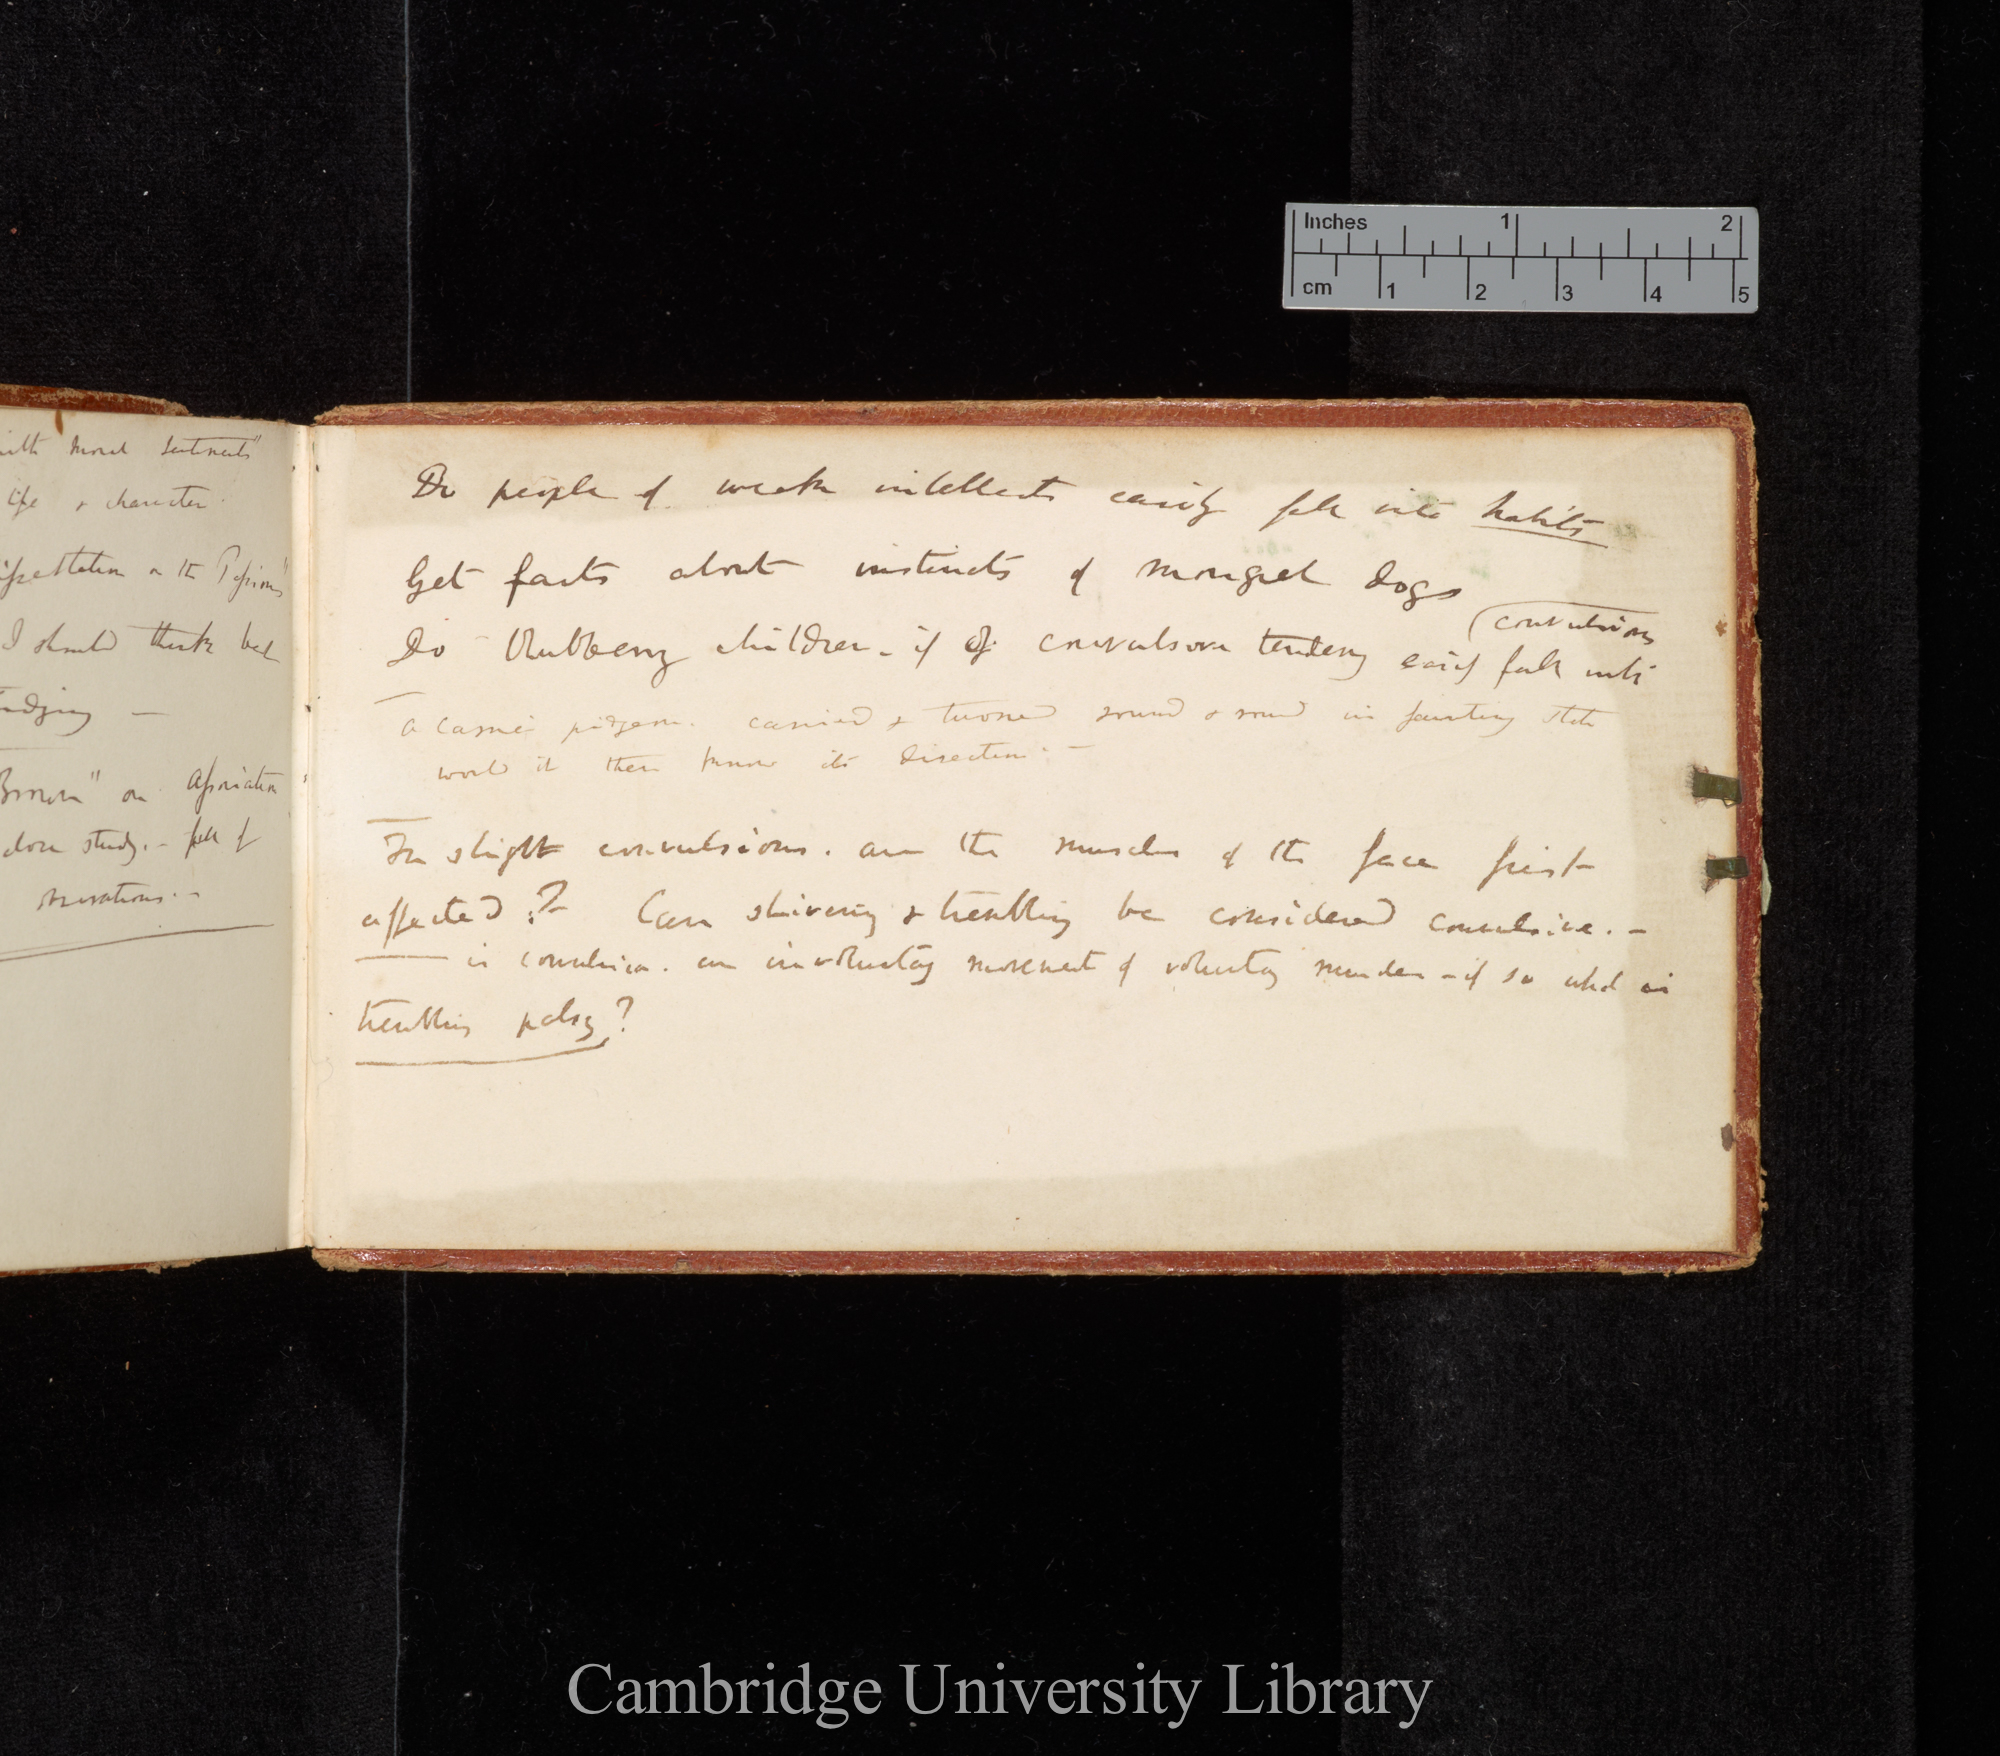 Inches 1 2
cm 1 2 3 4 5
moral sentiments"
life & character
on the Passions"
I should think best
"on Association
close study. - full of
Do people of weak intellects easily fall into habits
Get facts about instincts of mongrel dogs
Do blubbering children - if of convulsive tendency easily fall into
(convulsions
a carrier pidgeon. carried & turned round & round in fainting state
would it then know its direction. —
In slight convulsions. are the muscles of the face first
affected? Can shivering & trembling be considered convulsive. —
is convulsion. an involuntary movement of voluntary muscles - if so what is
trembling palsy?
Cambridge University Library